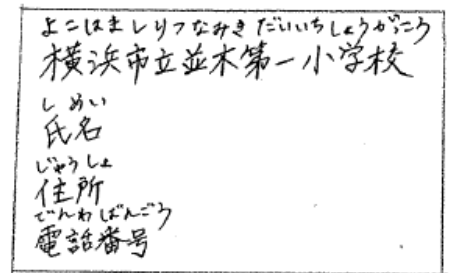 よこはましりつなみきだいいちしょうがっこう
横浜市立並木第一小学校
しめい
氏名
じゅうしょ
住所
でんわばんごう
電話番号